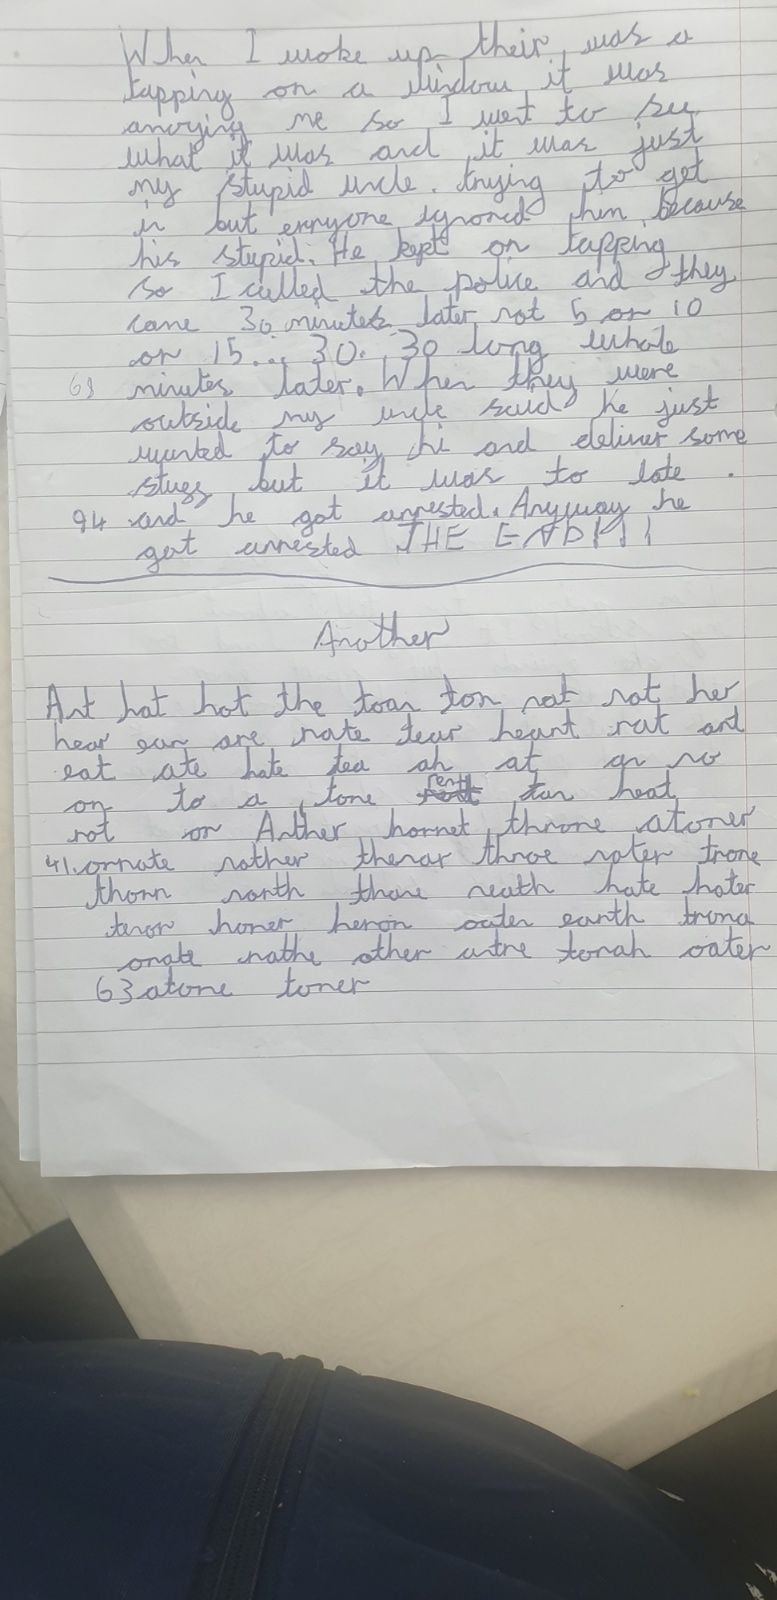 When I woke up their was a
tapping on a window it was
annoying me so I went to see
what it was and it was just
my stupid uncle. trying to get
in but everyone ignored him because
his stupid. He kept on tapping
so I called the police and they
came 30 minutes later not 5 or 10
or 15... 30. 30 long whole
63 minutes later. When they were
outside my uncle said he just
wanted to say hi and deliver some
stuff but it was to late.
94 and he got arrested. Anyway he
got arrested THE END!!!
Another
Ant hat hot the toan ton not not her
hear ear are nate tear heart rat art
eat ate hate tea ah at an no
on to a tone rent tan heat
rot or Anther hornet throne atoner
41. ornate nother thenar throe noter trone
thorn north thane neath hate hater
tenor honer heron oater earth trona
onate nathe other antre torah oater
63 atone toner